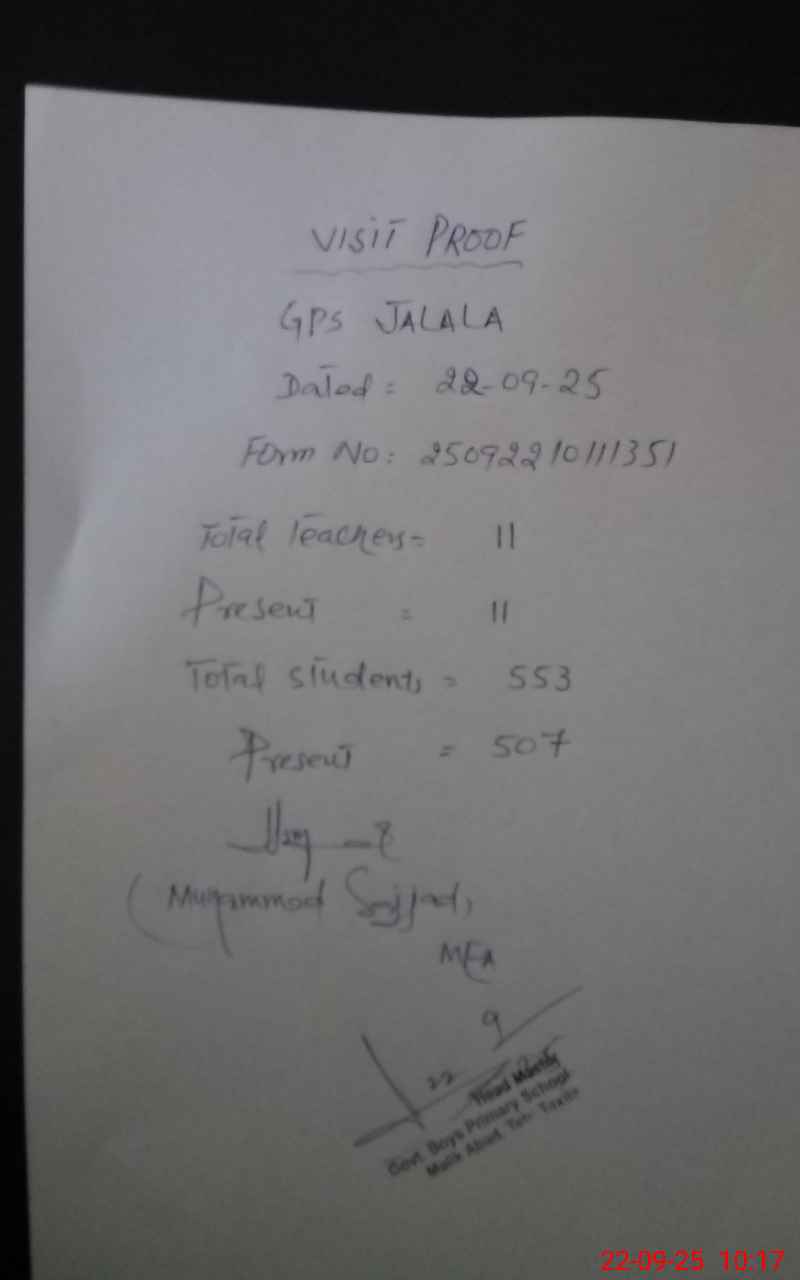 VISIT PROOF
GPS JALALA
Dated = 22-09-25
Form No: 25092210111351
Total Teachers = 11
Present = 11
Total students = 553
Present = 507
(Muhammad Sajjad,
MEA
22 9
Head Master
Govt. Boys Primary School
Malik Abad Teh: Taxila
22-09-25 10:17